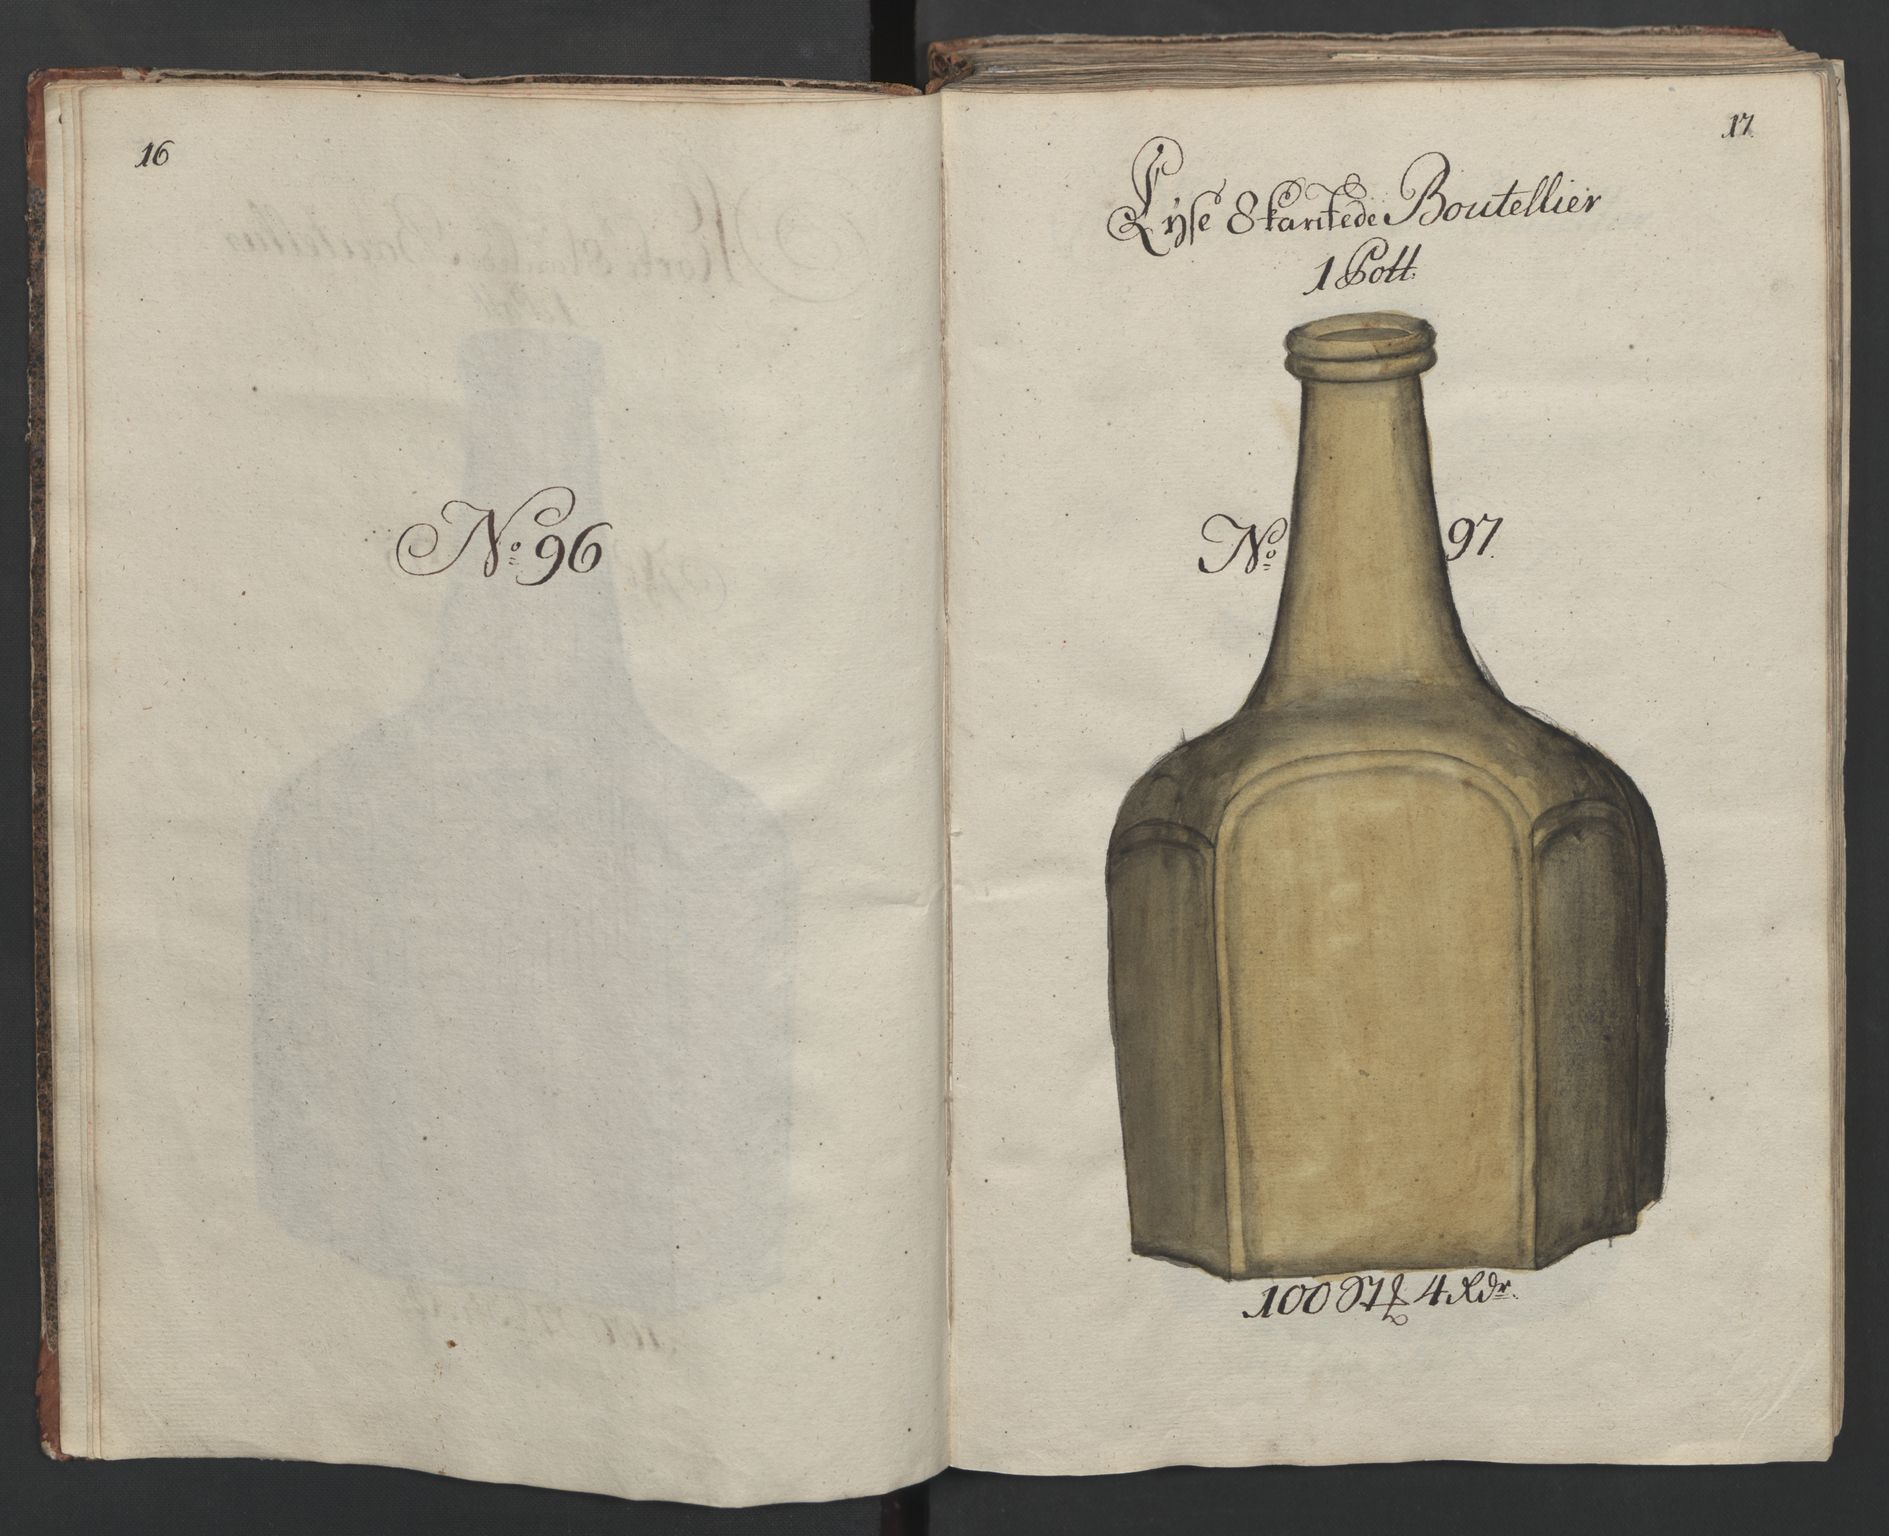 16
No 96
17
Lyse 8kantede Boutellier
1 Pott
No 97
100 St 4 Rdr.